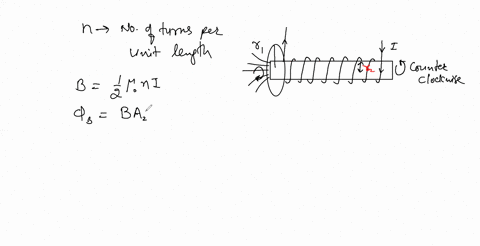 n → No. of turns per
unit length
B = 1/2 μ₀ n I
Φ_B = BA₂
r₁
I
r₂
Counter
clockwise